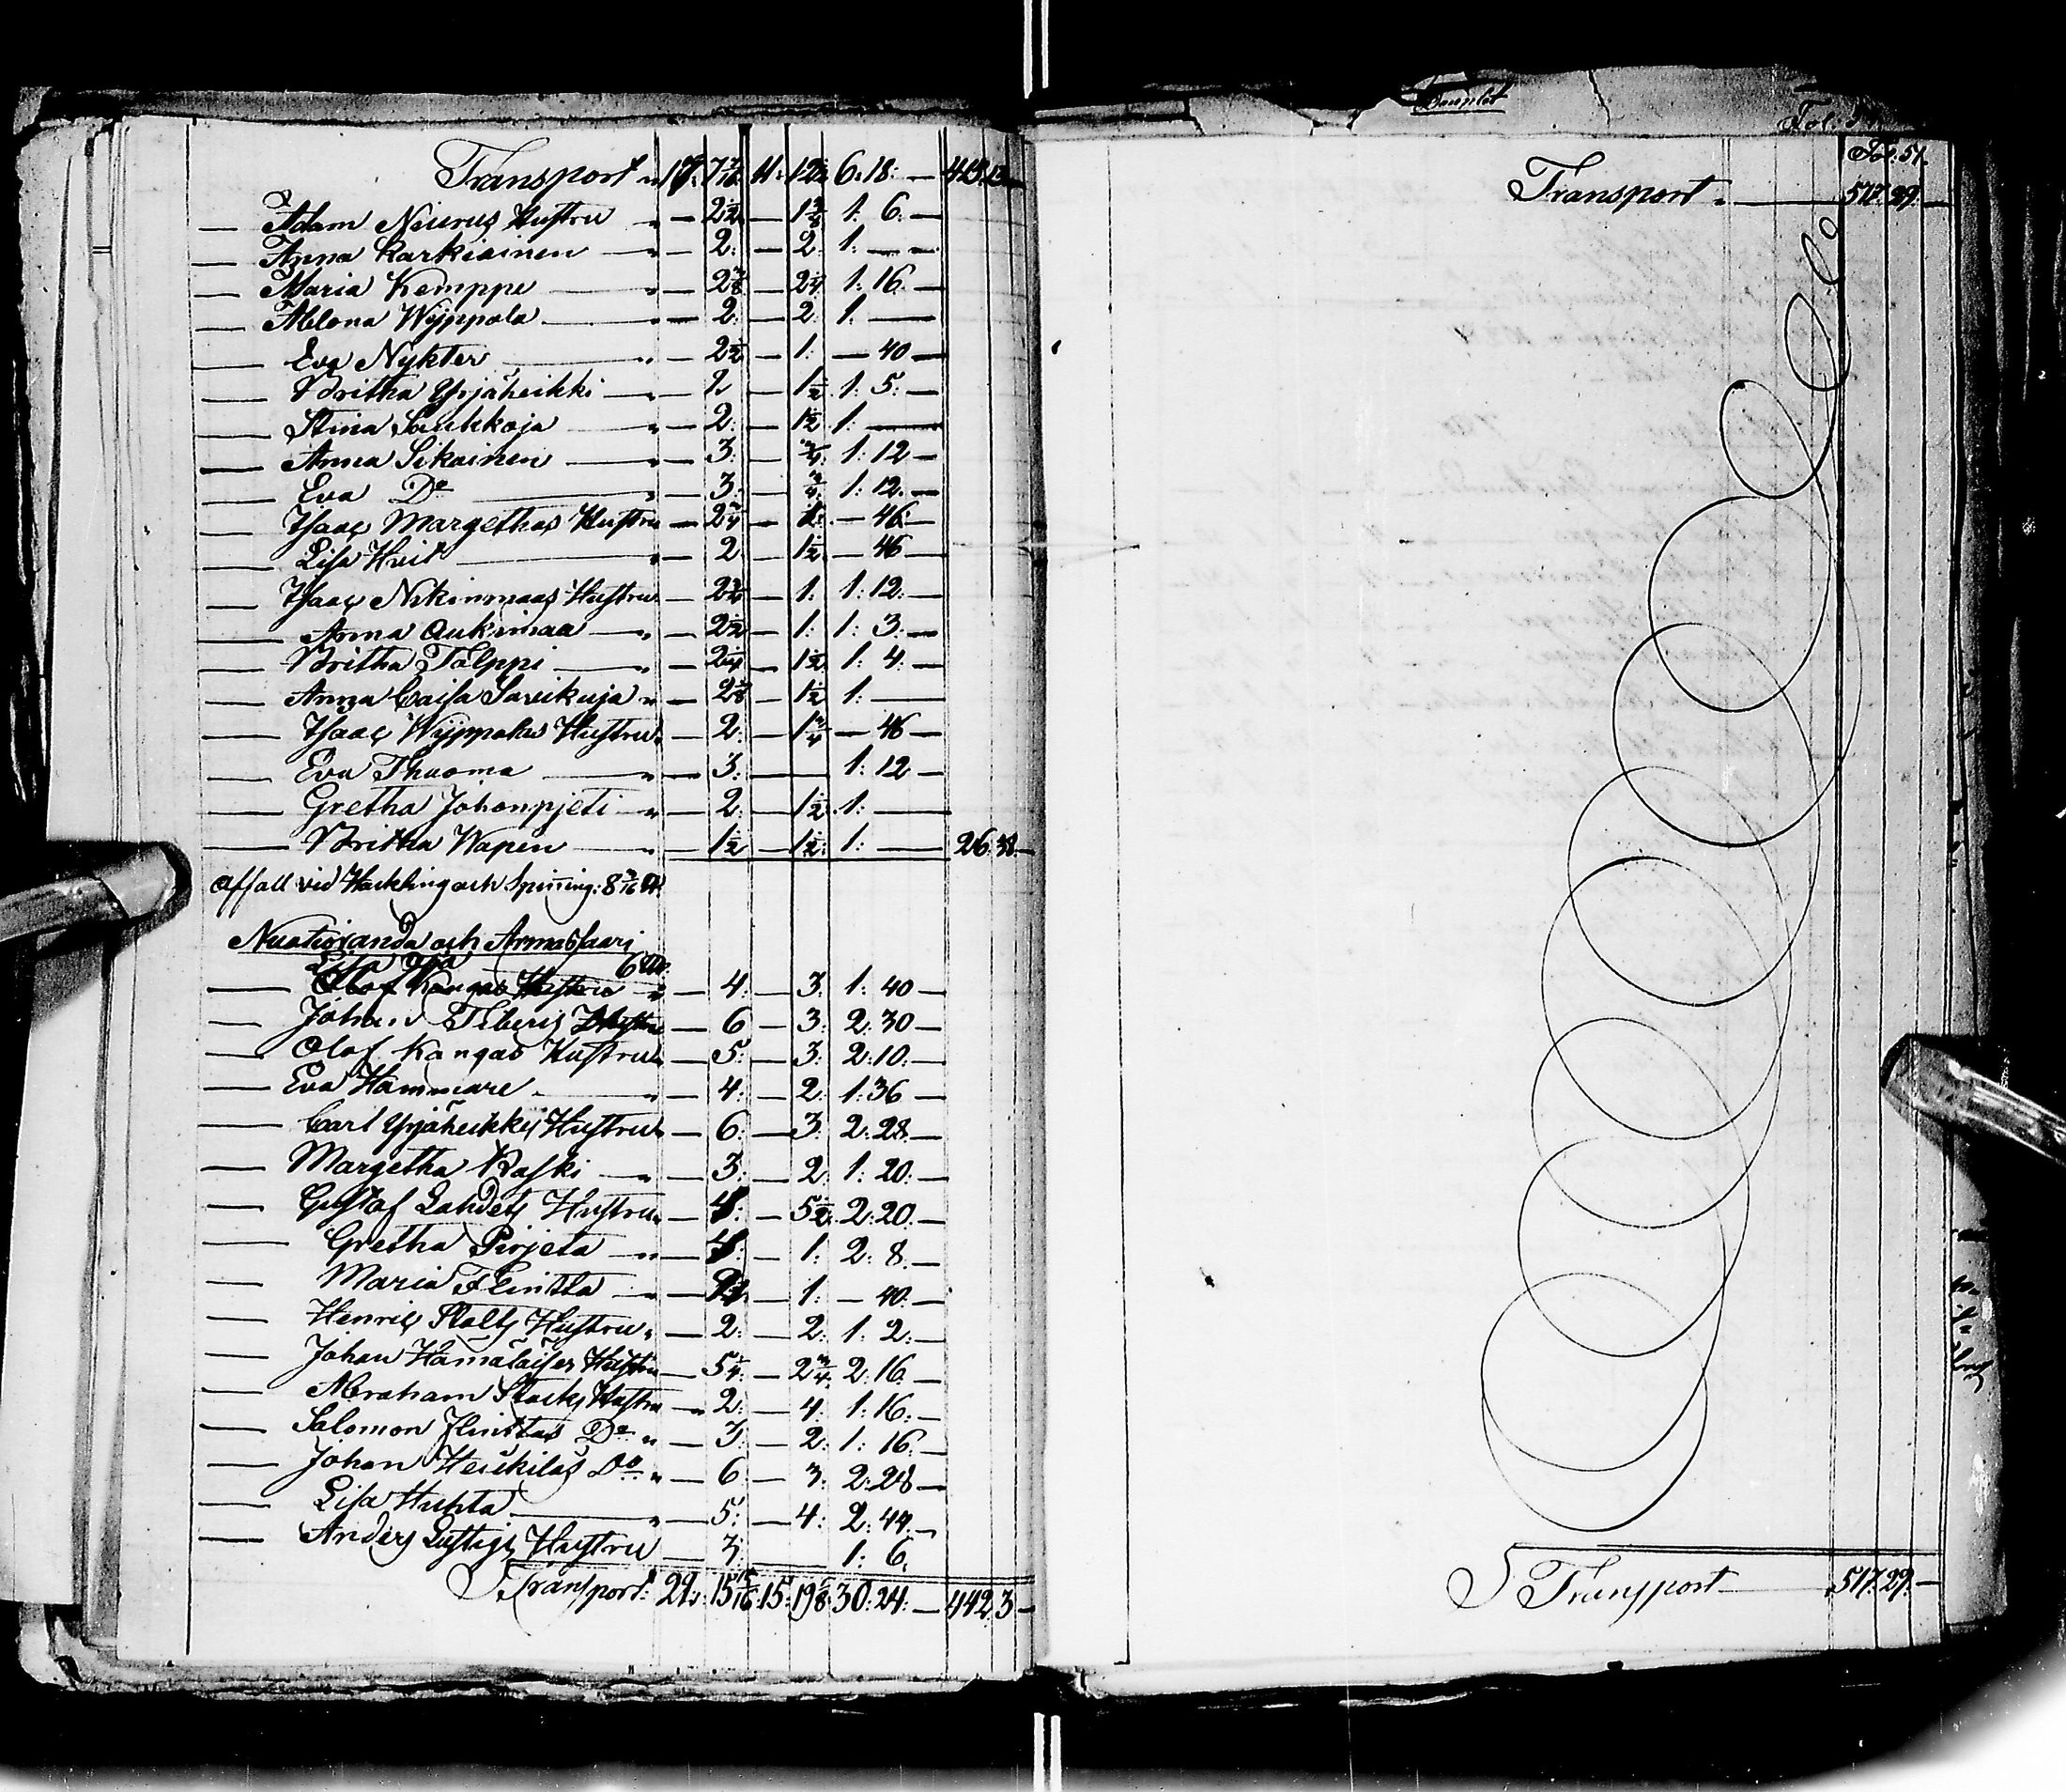 Transport " 17: 7 7/16 11: 1 2/8 6: 18: — 413 13
— Adam Niurus Hustru " — 2 1/2 — 1 3/8 1: 6: —
— Anna Karkiainen — " — 2: — 2: 1: — —
— Maria Kemppe — " — 2 3/8 — 2 1/4 1: 16: —
— Abelona Wyppola — " — 2: — 2: 1: —
— Eva Nykter — " — 2 1/2 — 1: — 40 —
— Britha Yrjäheikki — " — 2 — 1 1/2 1: 5: —
— Stina Saukkoja — " — 2: — 1 1/2 1: —
— Anna Sikainen — " — 3: — 3/4: 1: 12 —
— Eva Do — " — 3: — 3/4: 1: 12: —
— Isaac Margethas Hustru — 2 3/4 — 1: — 46: —
— Lisa Hvit — " — 2 — 1 1/2 — 46 —
— Isaac Nikinmaas Hustru — 2 3/4 — 1: 1: 12: —
— Anna Aukimaa — " — 2 1/2 — 1: 1: 3: —
— Britha Talppi — " — 2 1/4 — 1 1/2 1: 4: —
— Anna Caisa Savikuja " — 2 7/8 — 1 1/2 1: —
— Isaac Wyppolas Hustru " — 2: — 1 3/4 — 46 —
— Eva Thuoma — " — 3: — 1: 12 —
— Gretha Johanpjeti — " — 2: — 1 1/2 1: —
— Britha Wapen — " — 1 1/2 — 1 1/2: 1: — 26 38 —
Affall vid Häckling och Spinning: 8 3/16 ℔
Nuotioranda och Armassaari
Lisa 6 ℔
— Olof Kangas Hustru " — 4: — 3: 1: 40 —
— Johan Fibers Hustru — 6 — 3: 2: 30 —
— Olof Kangas Hustru " — 5: — 3: 2: 10: —
— Eva Hammare — " — 4: — 2: 1: 36 —
— Carl Yrjäheikkis Hustru " — 6: — 3: 2: 28 —
— Margetha Raski — " — 3: — 2: 1: 20: —
— Gustaf Lahdets Hustru " — 4: — 5 1/2: 2: 20: —
— Gretha Pirjeta — " — 4: — 1: 2: 8: —
— Maria Flinkta — " — — 1: — 40: —
— Henric Stolts Hustru " — 2: — 2: 1: 2: —
— Johan Hämäläises Hustru — 5 1/4: — 2 3/4: 2: 16: —
— Abraham Starks Hustru " — 2: — 4: 1: 16: —
— Salomon Flinktas Do " — 3: — 2: 1: 16: —
— Johan Heikiläs Do " — 6 — 3: 2: 28 —
— Lisa Huhta — " — 5: — 4: 2: 44: —
— Anders Lustigs Hustru — 3: — 1: 6:
Transport: 29: 15 15/16 15: 19 5/8 30: 24: — 442 3 —
Fol: 51
Transport " — 517: 29: —
Transport — 517: 29: —